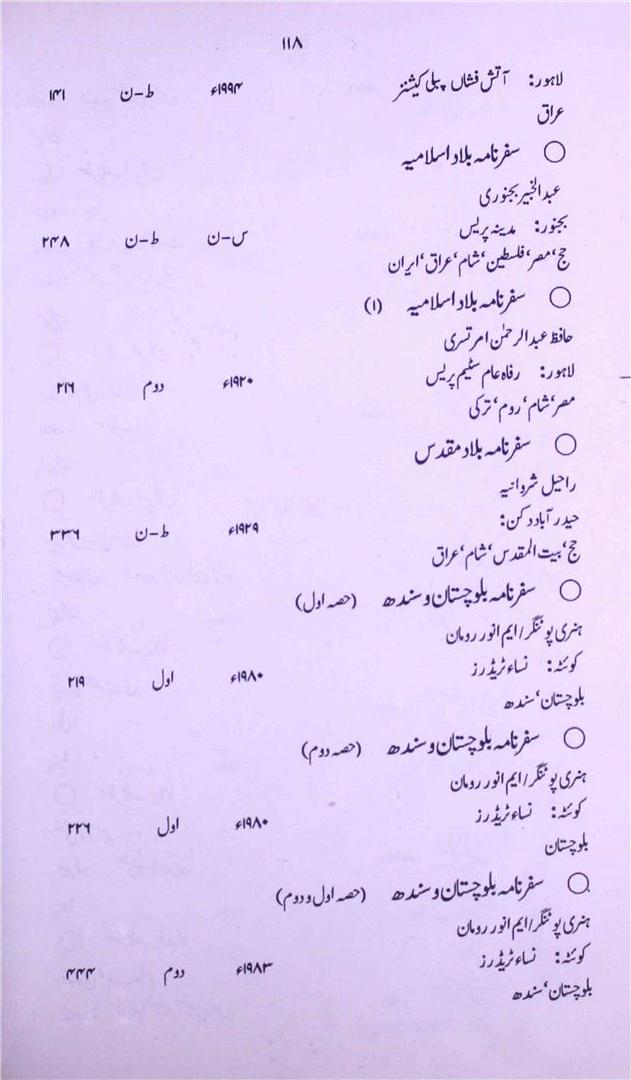 ۱۱۸
لاہور: آتش فشاں پبلی کیشنز ۱۹۹۴ء ط-ن ۱۴۱
عراق
سفرنامہ بلاد اسلامیہ
عبدالخبیر بجنوری
بجنور: مدینہ پریس س-ن ط-ن ۲۴۸
حج‘ مصر‘ فلسطین‘ شام‘ عراق‘ ایران
سفرنامہ بلاد اسلامیہ (۱)
حافظ عبدالرحمٰن امرتسری
لاہور: رفاہ عام سٹیم پریس ۱۹۲۰ء دوم ۲۱۶
مصر‘ شام‘ روم‘ ترکی
سفرنامہ بلاد مقدس
راحیل شروانیہ
حیدر آباد دکن: ۱۹۲۹ء ط-ن ۳۳۶
حج‘ بیت المقدس‘ شام‘ عراق
سفرنامہ بلوچستان و سندھ (حصہ اول)
ہنری پوٹنگر/ایم انور رومان
کوئٹہ: نساء ٹریڈرز ۱۹۸۰ء اول ۲۱۹
بلوچستان‘ سندھ
سفرنامہ بلوچستان و سندھ (حصہ دوم)
ہنری پوٹنگر/ایم انور رومان
کوئٹہ: نساء ٹریڈرز ۱۹۸۰ء اول ۲۲۶
بلوچستان
سفرنامہ بلوچستان و سندھ (حصہ اول و دوم)
ہنری پوٹنگر/ایم انور رومان
کوئٹہ: نساء ٹریڈرز ۱۹۸۳ء دوم ۴۴۴
بلوچستان‘ سندھ